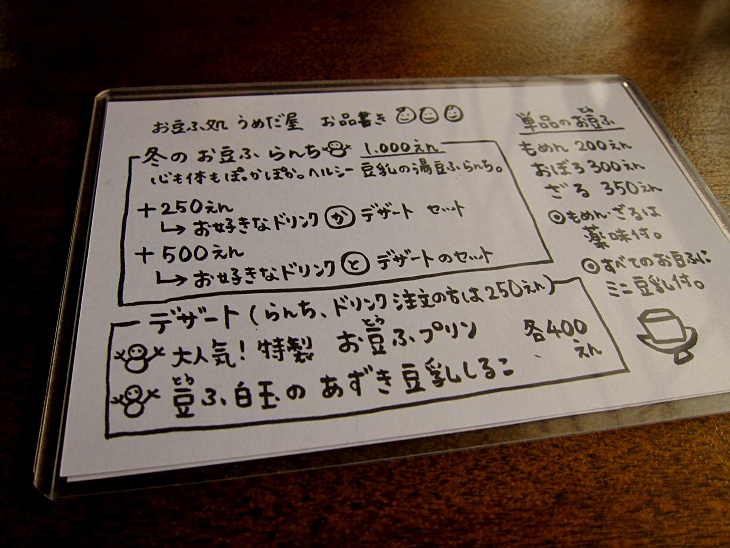 お豆ふ処 うめだ屋 お品書き
冬の お豆ふ らんち 1.000えん
心も体もぽっかぽか。ヘルシー 豆乳の湯豆ふらんち。
+250えん
↳ お好きなドリンク か デザート セット
+500えん
↳ お好きなドリンク と デザートのセット
デザート (らんち、ドリンク注文の方は250えん)
大人気! 特製 お豆ふプリン
とう
各400えん
豆ふ白玉の あずき豆乳しるこ
とう
単品のお豆ふ
とう
もめん 200えん
おぼろ 300えん
ざる 350えん
◎もめん・ざるは
薬味付。
◎すべてのお豆ふに
ミニ豆乳付。